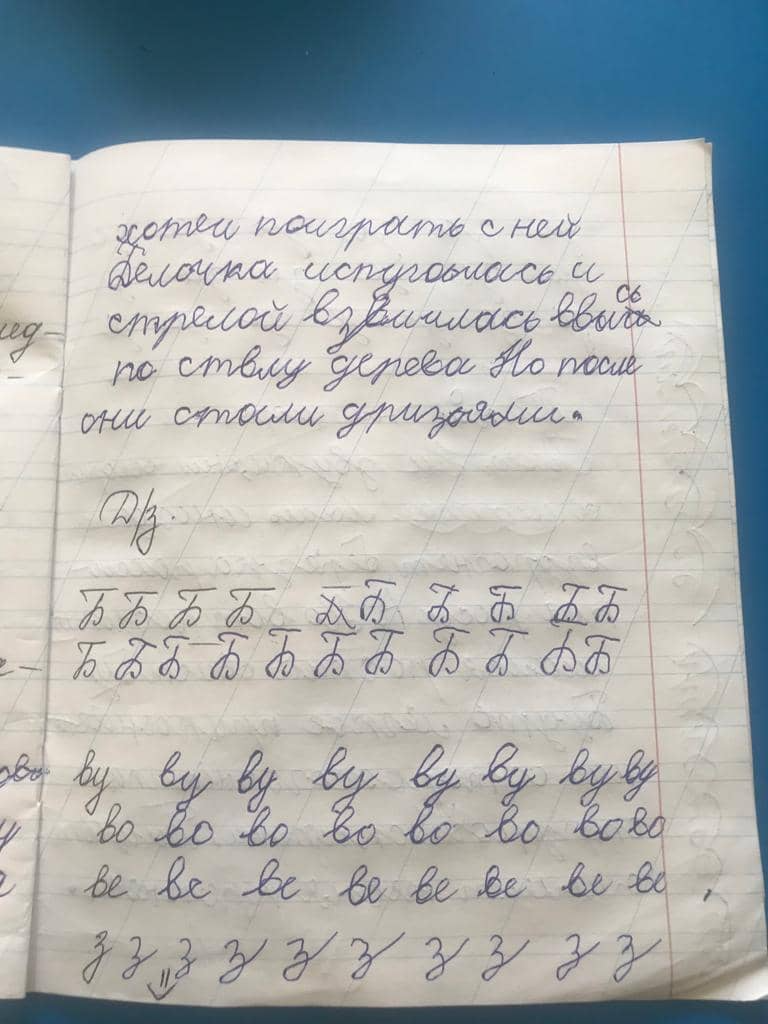 хотел поиграть с ней
Белочка испугоьлась и
стрелой взвилилась ввысь
по ствлу дерева Но после
они стали дризьями.
Д/з.
Б Б Б Б Б Б Б Б Б
Б Б Б Б Б Б Б Б Б Б Б
ву ву ву ву ву ву ву ву
во во во во во во во во
ве ве ве ве ве ве ве ве
з з з з з з з з з з